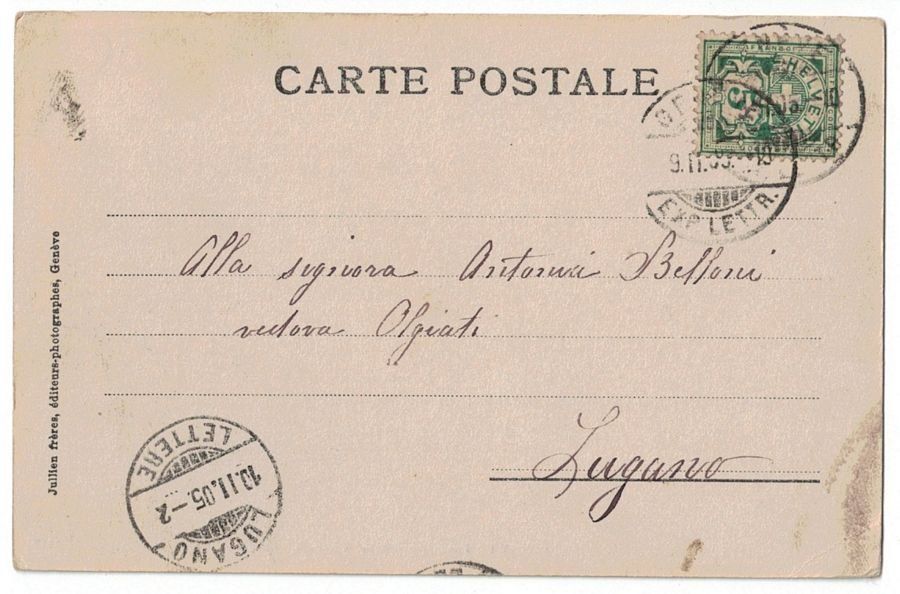 CARTE POSTALE
FRANCO
HELVETIA
5
9.II.05.
EXP. LETTR.
Alla signora Antonia Belloni
vedova Olgiati
Lugano
LETTERE
10.II.05.-2
LUGANO
Jullien frères, éditeurs-photographes, Genève